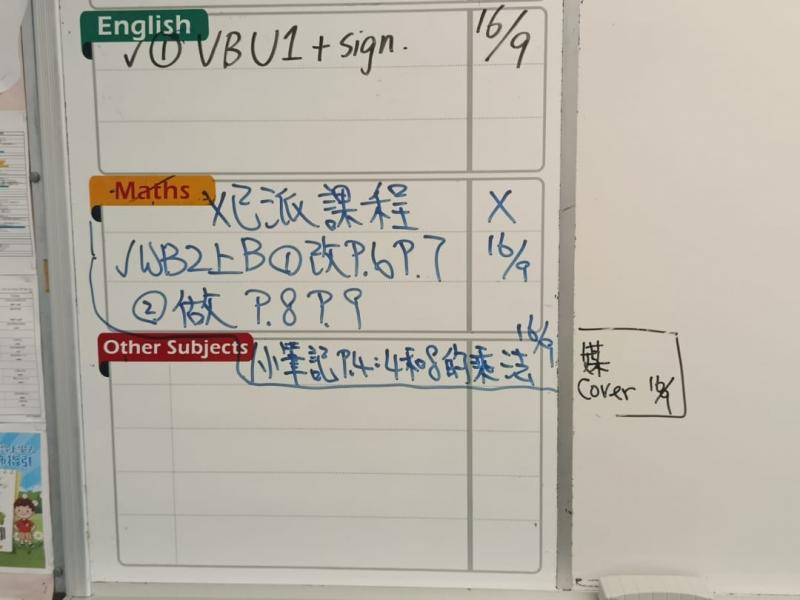 English
✓① VB U1 + sign. 16/9
Maths
X 已派課程 X
✓WB2上B ①改P.6 P.7 16/9
②做 P.8 P.9
Other Subjects
小筆記P.4:4和8的乘法 16/9
媒
Cover 16/9
指引